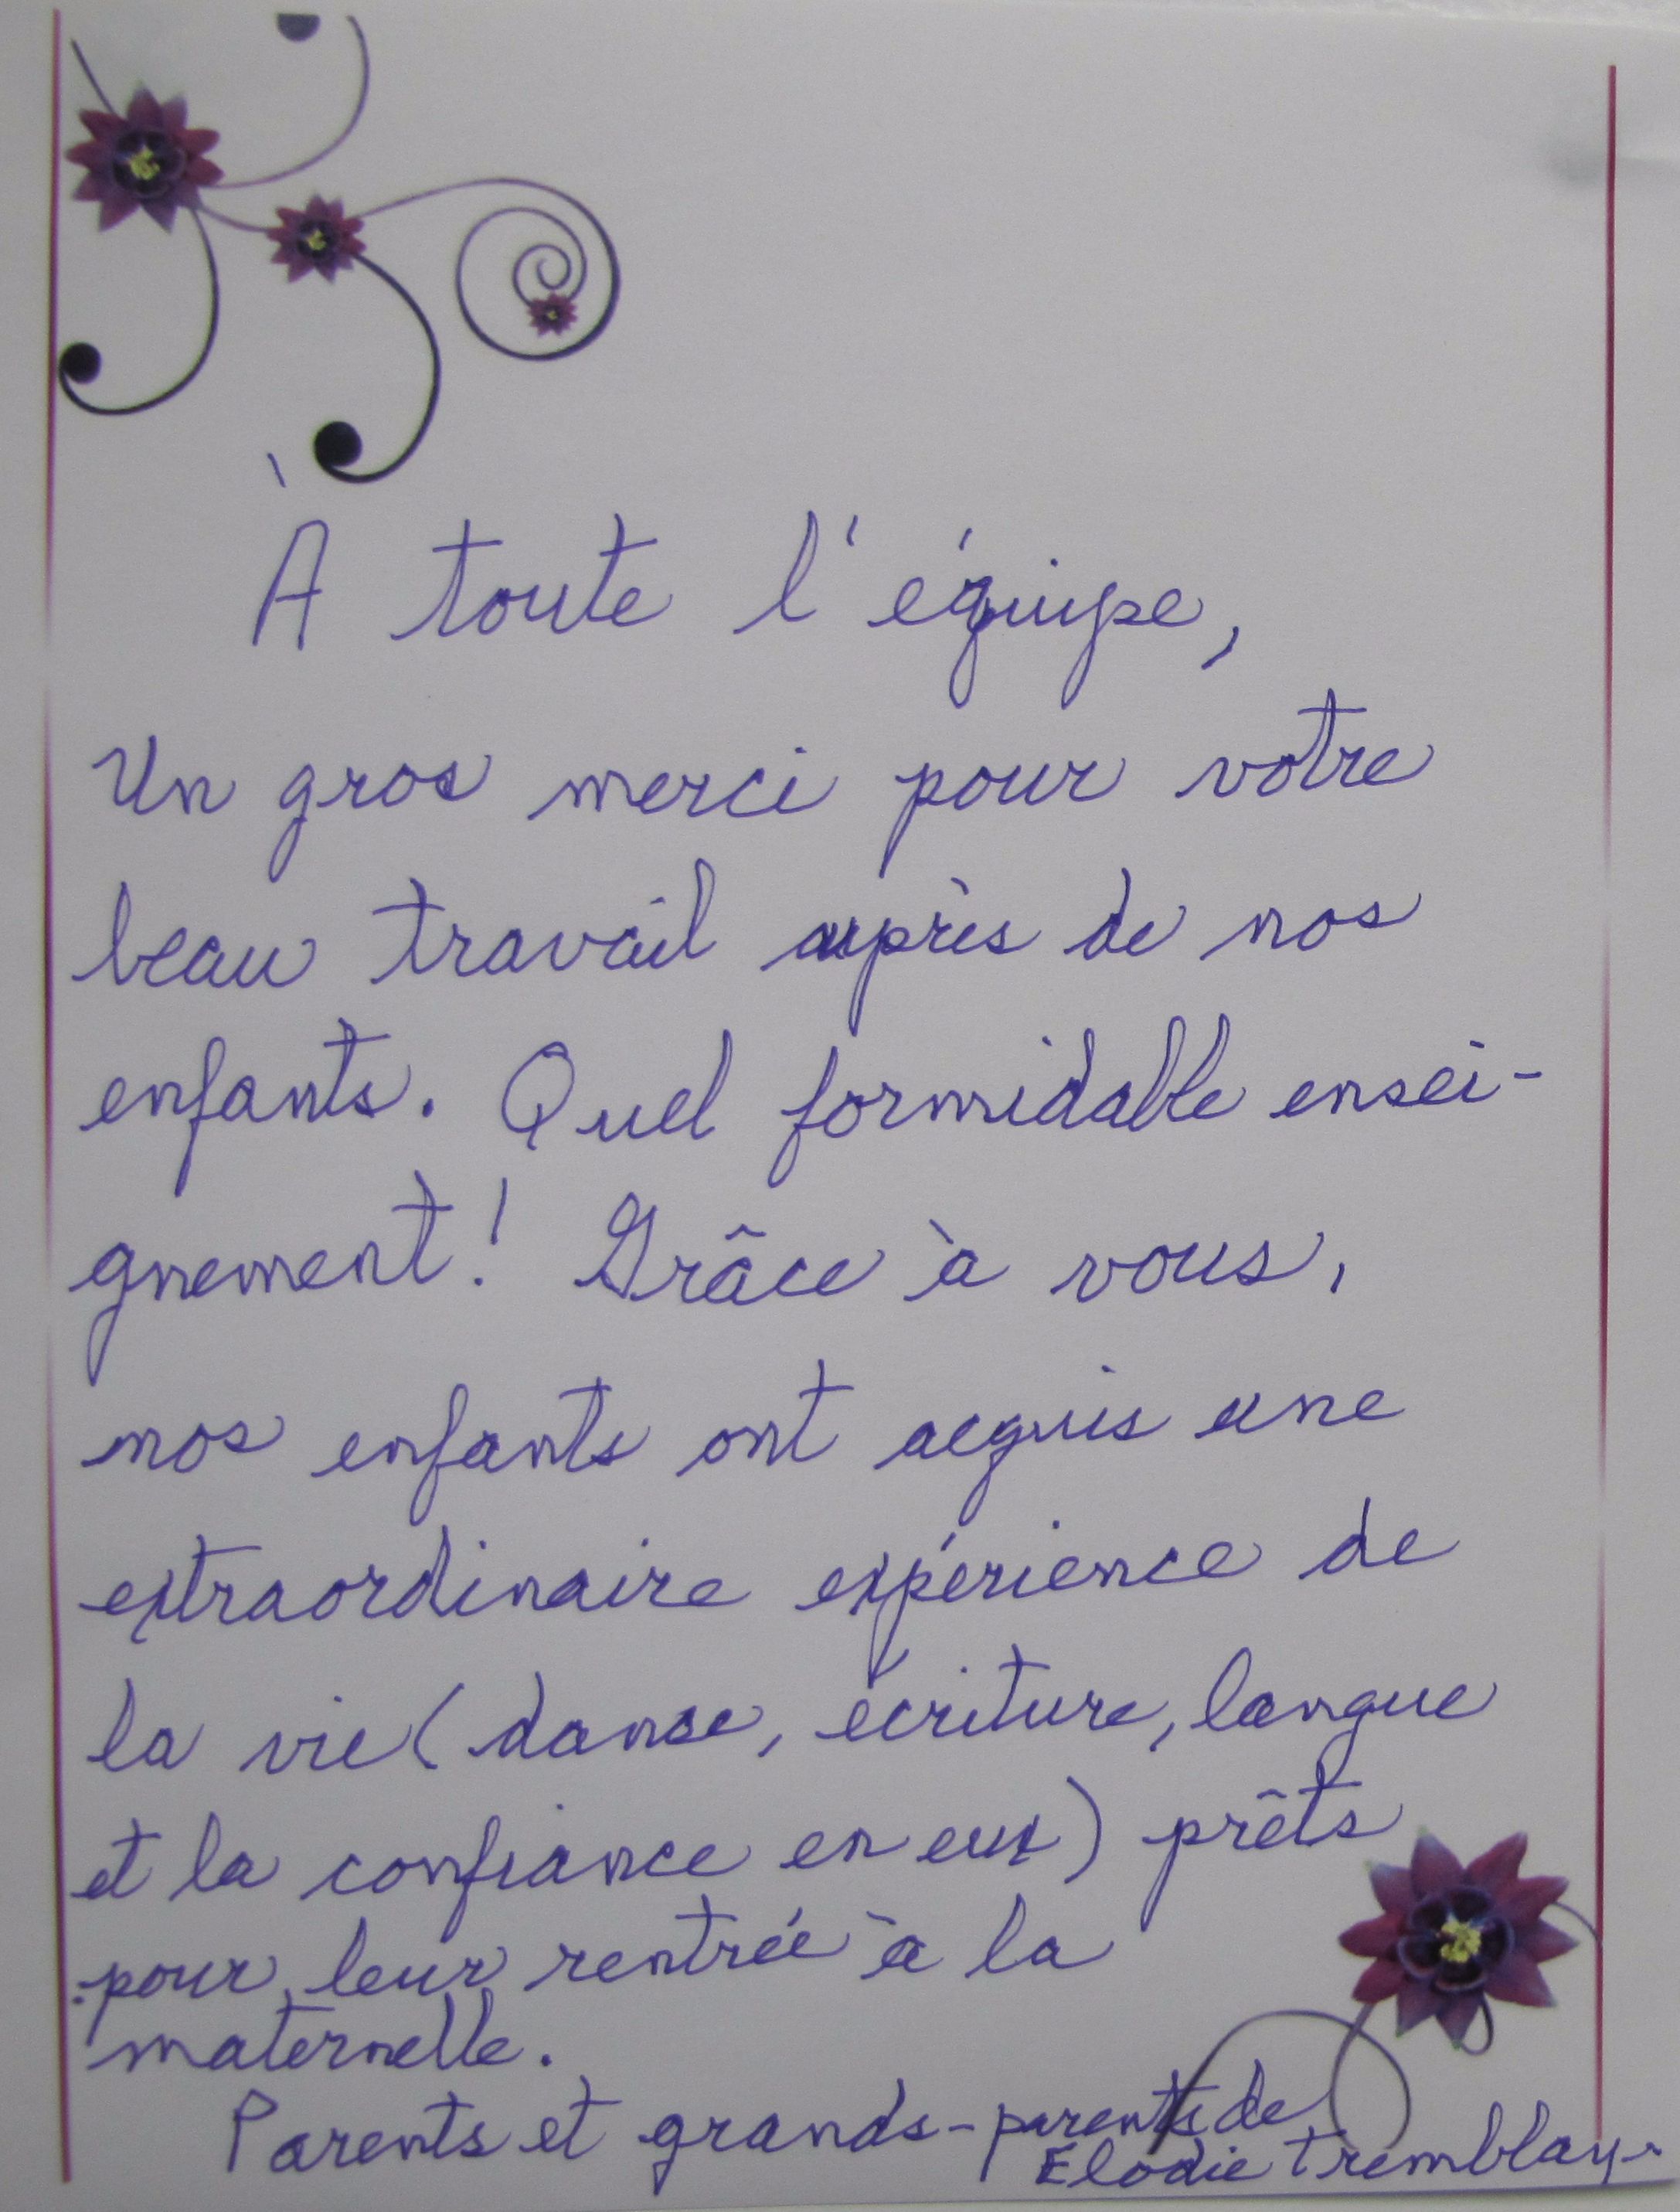 À toute l'équipe,
Un gros merci pour votre
beau travail auprès de nos
enfants. Quel formidable ensei-
gnement! Grâce à vous,
nos enfants ont acquis une
extraordinaire expérience de
la vie (danse, écriture, langue
et la confiance en eux) prêts
pour leur rentrée à la
maternelle.
Parents et grands-parents de
Elodie Tremblay